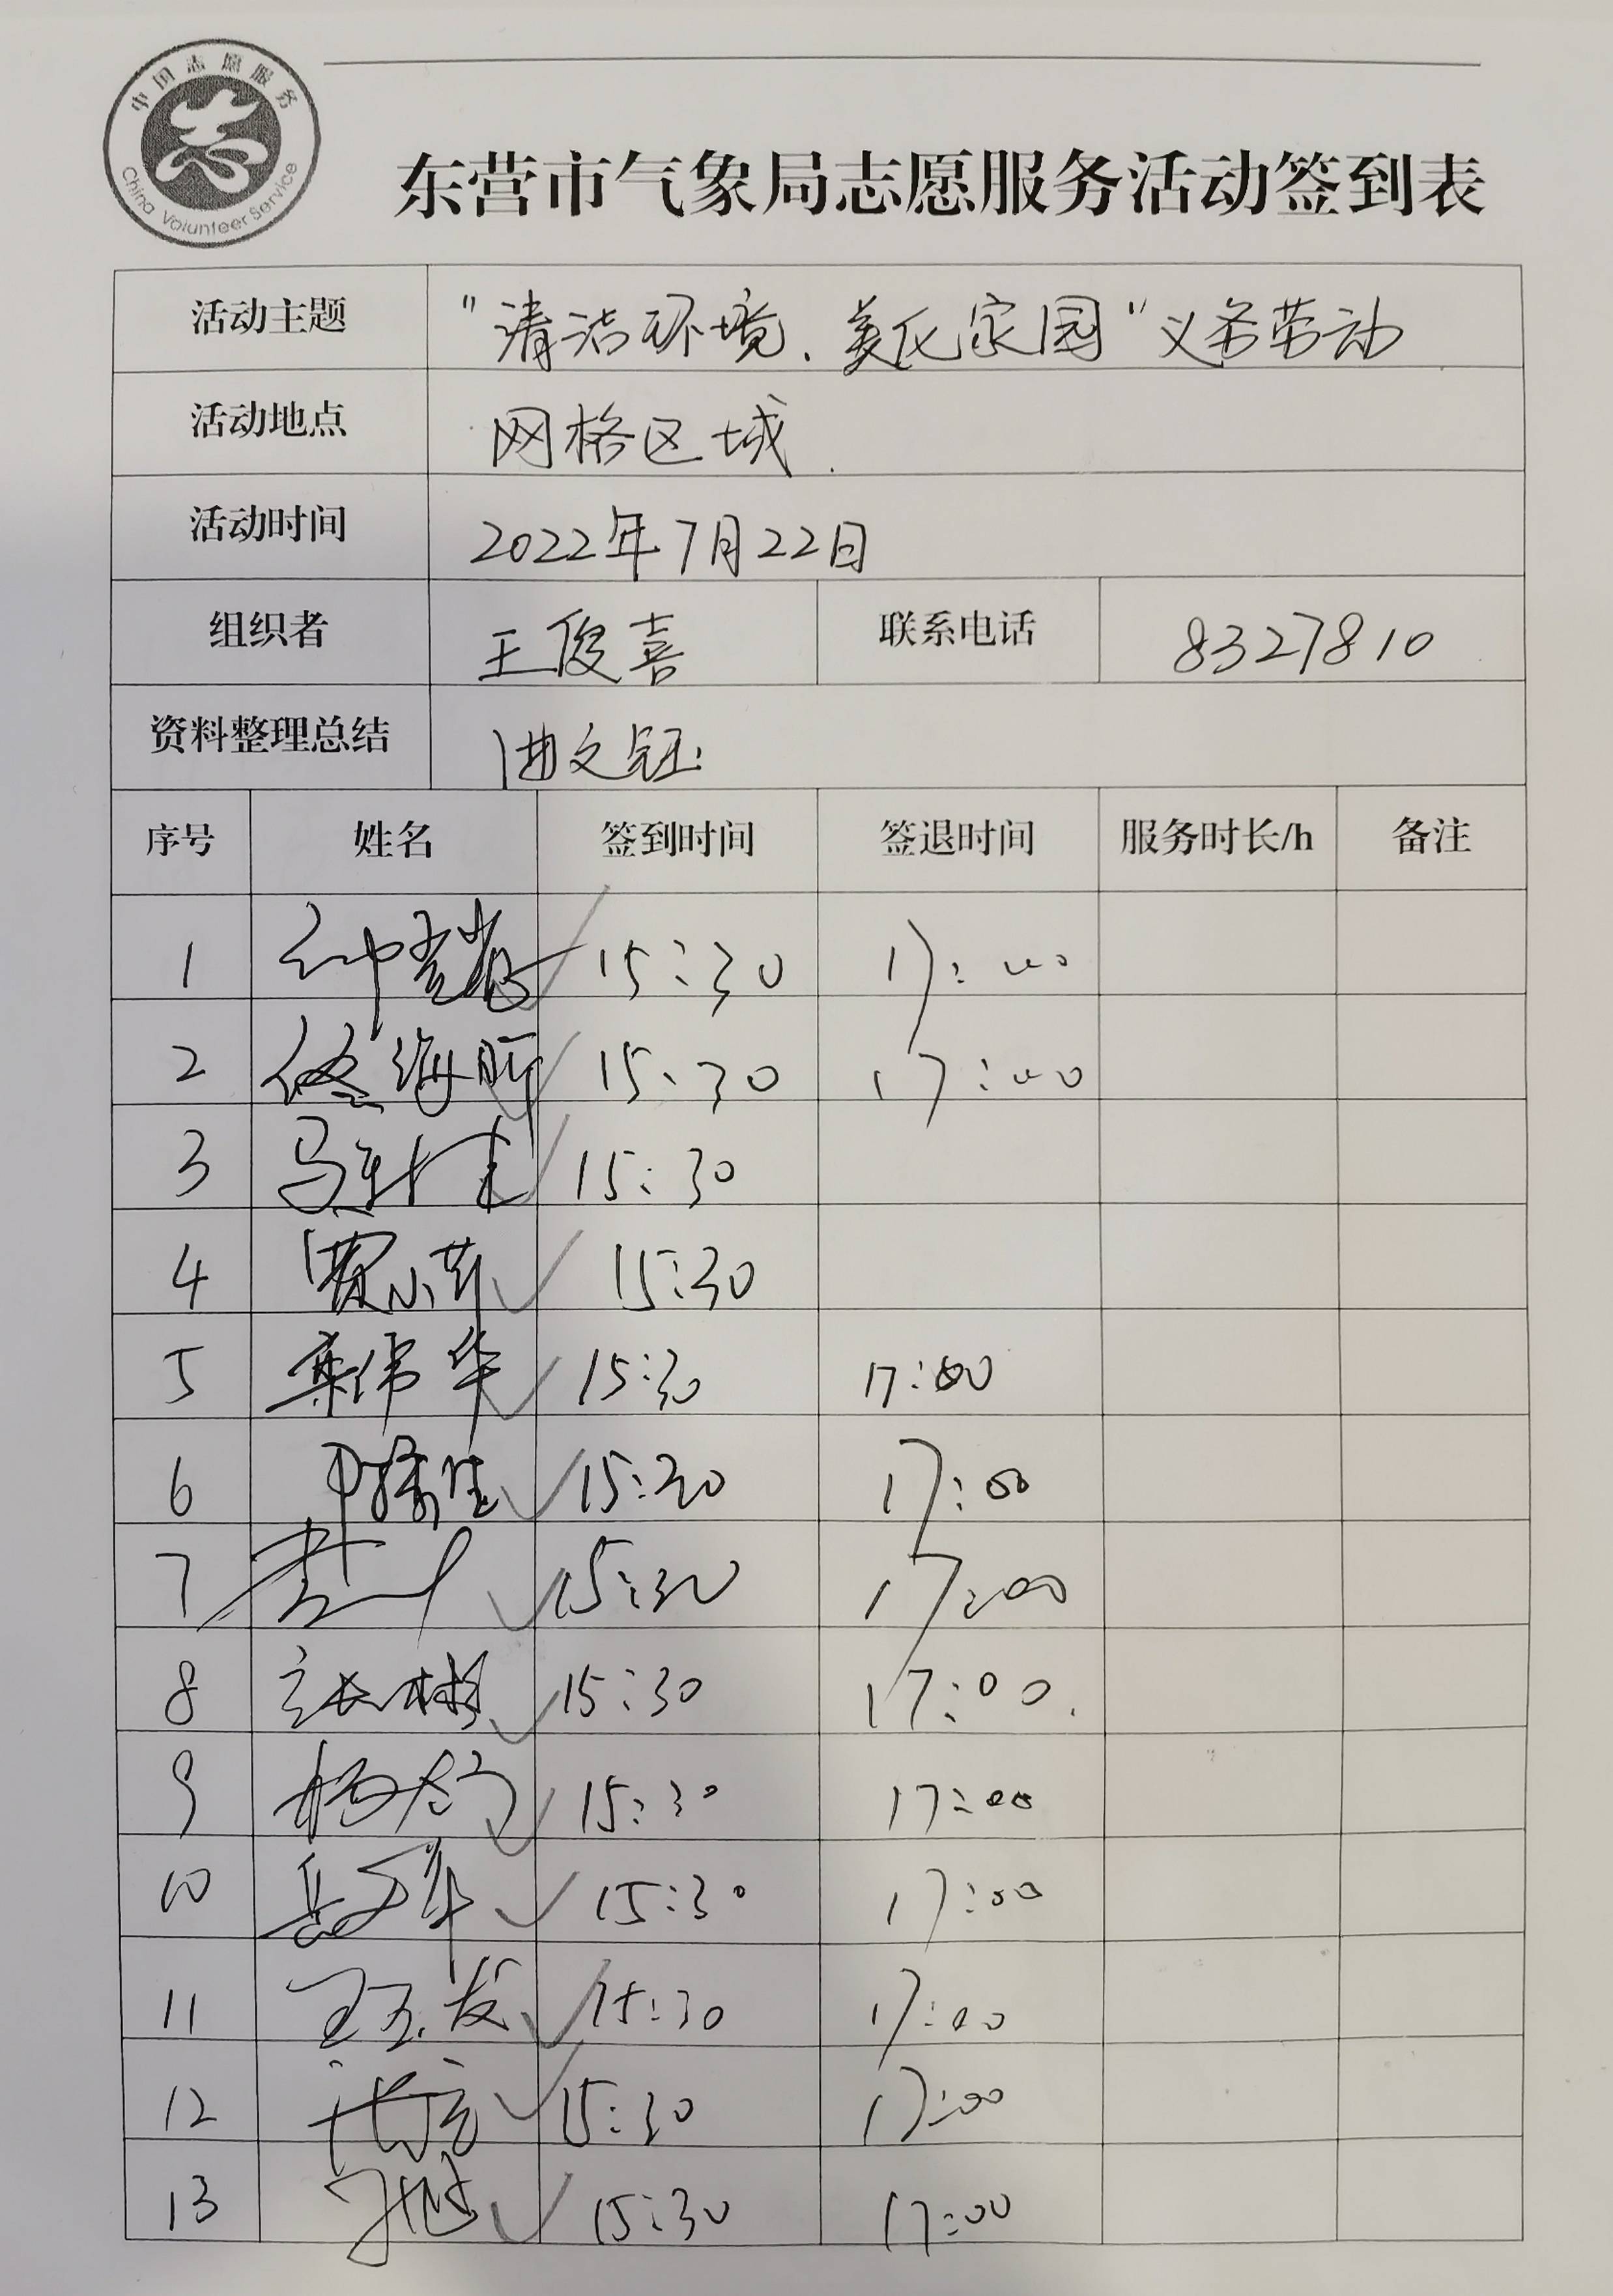 中国志愿服务
China Volunteer Service
东营市气象局志愿服务活动签到表
活动主题 "清洁环境、美化家园"义务劳动
活动地点 网格区域
活动时间 2022年7月22日
组织者 王俊喜 联系电话 8327810
资料整理总结 曲文钰
序号 姓名 签到时间 签退时间 服务时长/h 备注
1 15:30 17:00
2 佟海昕 15:30 17:00
3 15:30
4 15:30
5 伟华 15:30 17:00
6 15:30 17:00
7 15:30 17:00
8 15:30 17:00
9 15:30 17:00
10 15:30 17:00
11 15:30 17:00
12 15:30 17:00
13 15:30 17:00